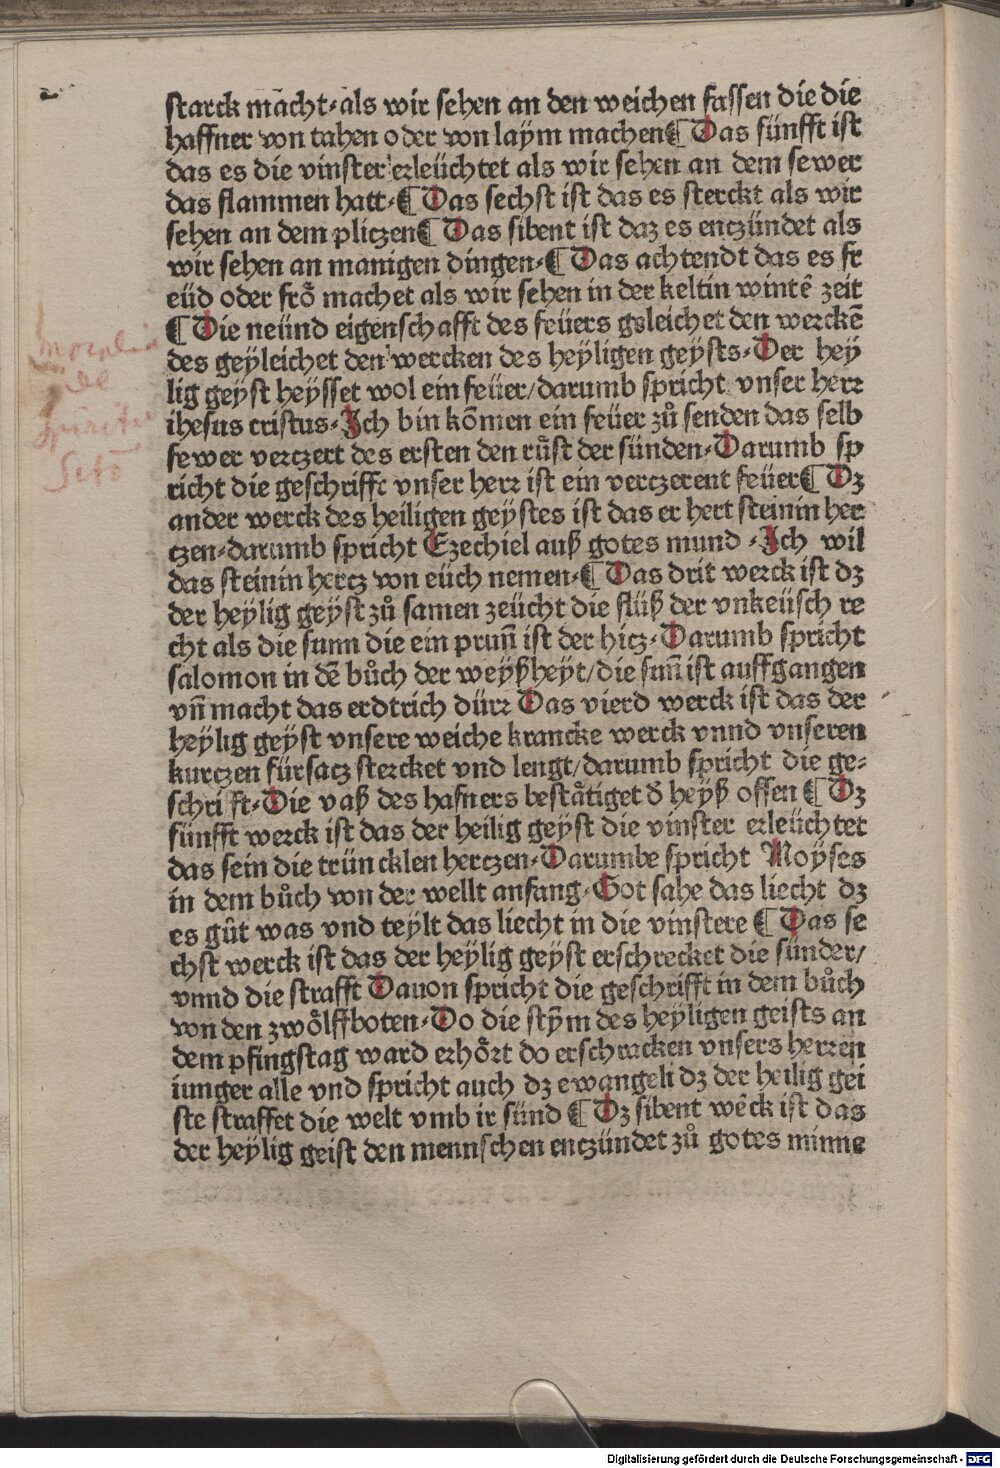 starck macht·als wir sehen an den weichen fassen die die
haffner von tahen oder von laÿm machen¶ Das fünfft ist
das es die vinster erleüchtet als wir sehen an dem fewer
das flammen hatt·¶ Das sechst ist das es sterckt als wir
sehen an dem pliczen¶ Das sibent ist daz es enczündet als
wir sehen an manigen dingen·¶ Das achtendt das es fr
eüd oder frő machet als wir sehen in der keltin wintẽ zeit
¶ Die neünd eigenschafft des feüers geleichet den werckẽ
des geÿleichet den wercken des heÿligen geÿsts·Der heÿ
lig geÿst heÿsset wol ein feüer/darumb spricht vnser herr
ihesus cristus·Ich bin kõmen ein feüer zů senden das selb
fewer verczert des ersten den růst der sünden·Darumb sp
richt die geschrifft vnser herr ist ein verczerent feüer¶ Dz
ander werck des heiligen geÿstes ist das er hert steinin her
czen·darumb spricht Ezechiel auß gotes mund ·Ich wil
das steinin hercz von eüch nemen·¶ Das drit werck ist dz
der heÿlig geÿst zů samen zeücht die flüß der vnkeüsch re
cht als die sunn die ein prunñ ist der hicz·Darumb spricht
salomon in dẽ bůch der weÿßheÿt/die suñ ist auffgangen
vñ macht das erdtrich dürr Das vierd werck ist das der
heÿlig geÿst vnsere weiche krancke werck vnnd vnseren
kurczen fürsacz stercket vnd lengt/darumb spricht die ge-
schrifft·Die vaß des hafners bestätiget ð heÿß offen ¶ Dz
fünfft werck ist das der heilig geÿst die vinster erleüchtet
das sein die trüncklen herczen·Darumbe spricht Moÿses
in dem bůch von der wellt anfang·Got sahe das liecht dz
es gůt was vnd teÿlt das liecht in die vinstere ¶ Das se
chst werck ist das der heÿlig geÿst erschrecket die sünder/
vnnd die strafft Dauon spricht die geschrifft in dem bůch
von den zwölffboten·Do die stÿm des heÿligen geists an
dem pfingstag ward erhört do erschracken vnsers herren
iunger alle vnd spricht auch dz ewangeli dz der heilig gei
ste straffet die welt vmb ir sünd ¶ Dz sibent wẽck ist das
der heÿlig geist den mennschen enczündet zů gotes minne
de
Digitalisierung gefördert durch die Deutsche Forschungsgemeinschaft - DFG